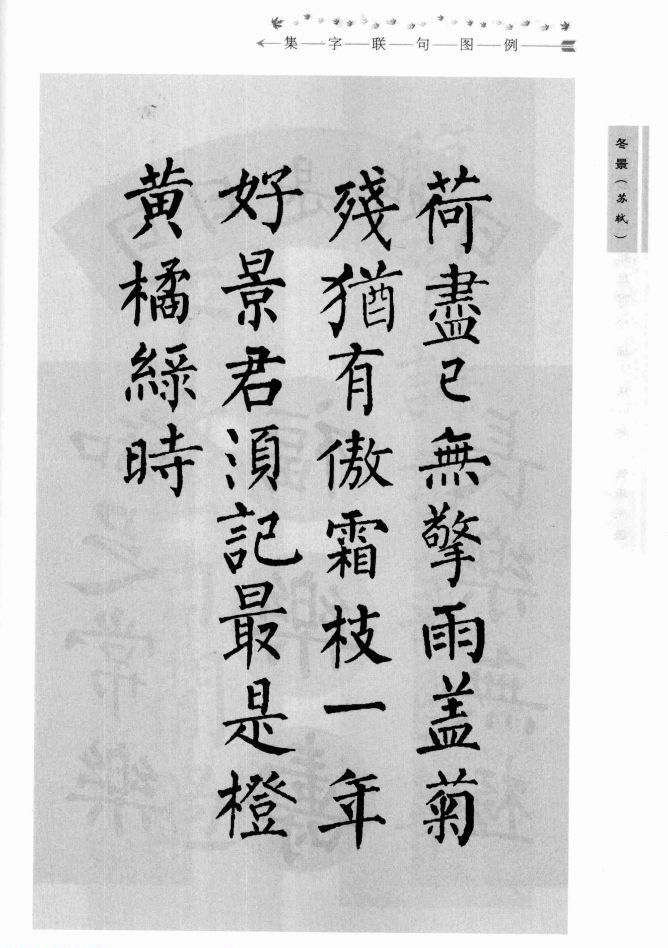 集字联句图例
冬景（苏轼）
荷盡已無擎雨盖菊
殘猶有傲霜枝一年
好景君湏記最是橙
黄橘綠時